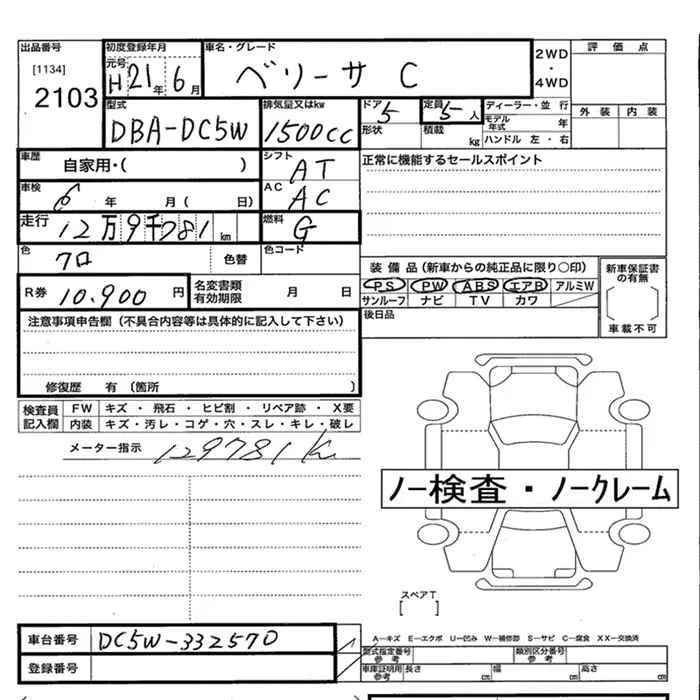 出品番号
[1134]
2103
初度登録年月
元号
H21年6月
車名・グレード
ベリーサ C
2WD
・
4WD
評価点
外装 内装
型式
DBA-DC5W
排気量又はkw
1500cc
ドア 5
形状
定員 5人
積載 kg
ディーラー・並行
モデル年式 年
ハンドル 左・右
車歴
自家用・( )
シフト
AT
正常に機能するセールスポイント
車検
6年 月( 日)
AC
AC
走行
12万9千781km
燃料
G
色
クロ
色替
色コード
装備品(新車からの純正品に限り○印)
PS PW ABS エアB アルミW
サンルーフ ナビ TV カワ
新車保証書の有無
[ ]
車載不可
R券 10,900円
名変書類有効期限 月 日
後日品
注意事項申告欄(不具合内容等は具体的に記入して下さい)
修復歴 有〔箇所 〕
検査員記入欄
FW キズ・飛石・ヒビ割・リペア跡・X要
内装 キズ・汚レ・コゲ・穴・スレ・キレ・破レ
メーター指示 129781K
ノー検査・ノークレーム
スペアT
[ ]
車台番号 DC5W-332570
登録番号
A-キズ E-エクボ U-凹み W-補修跡 S-サビ C-腐食 XX-交換済
型式指定番号 参考
類別区分番号 参考
車庫証明用 参考
長さ cm 幅 cm 高さ cm